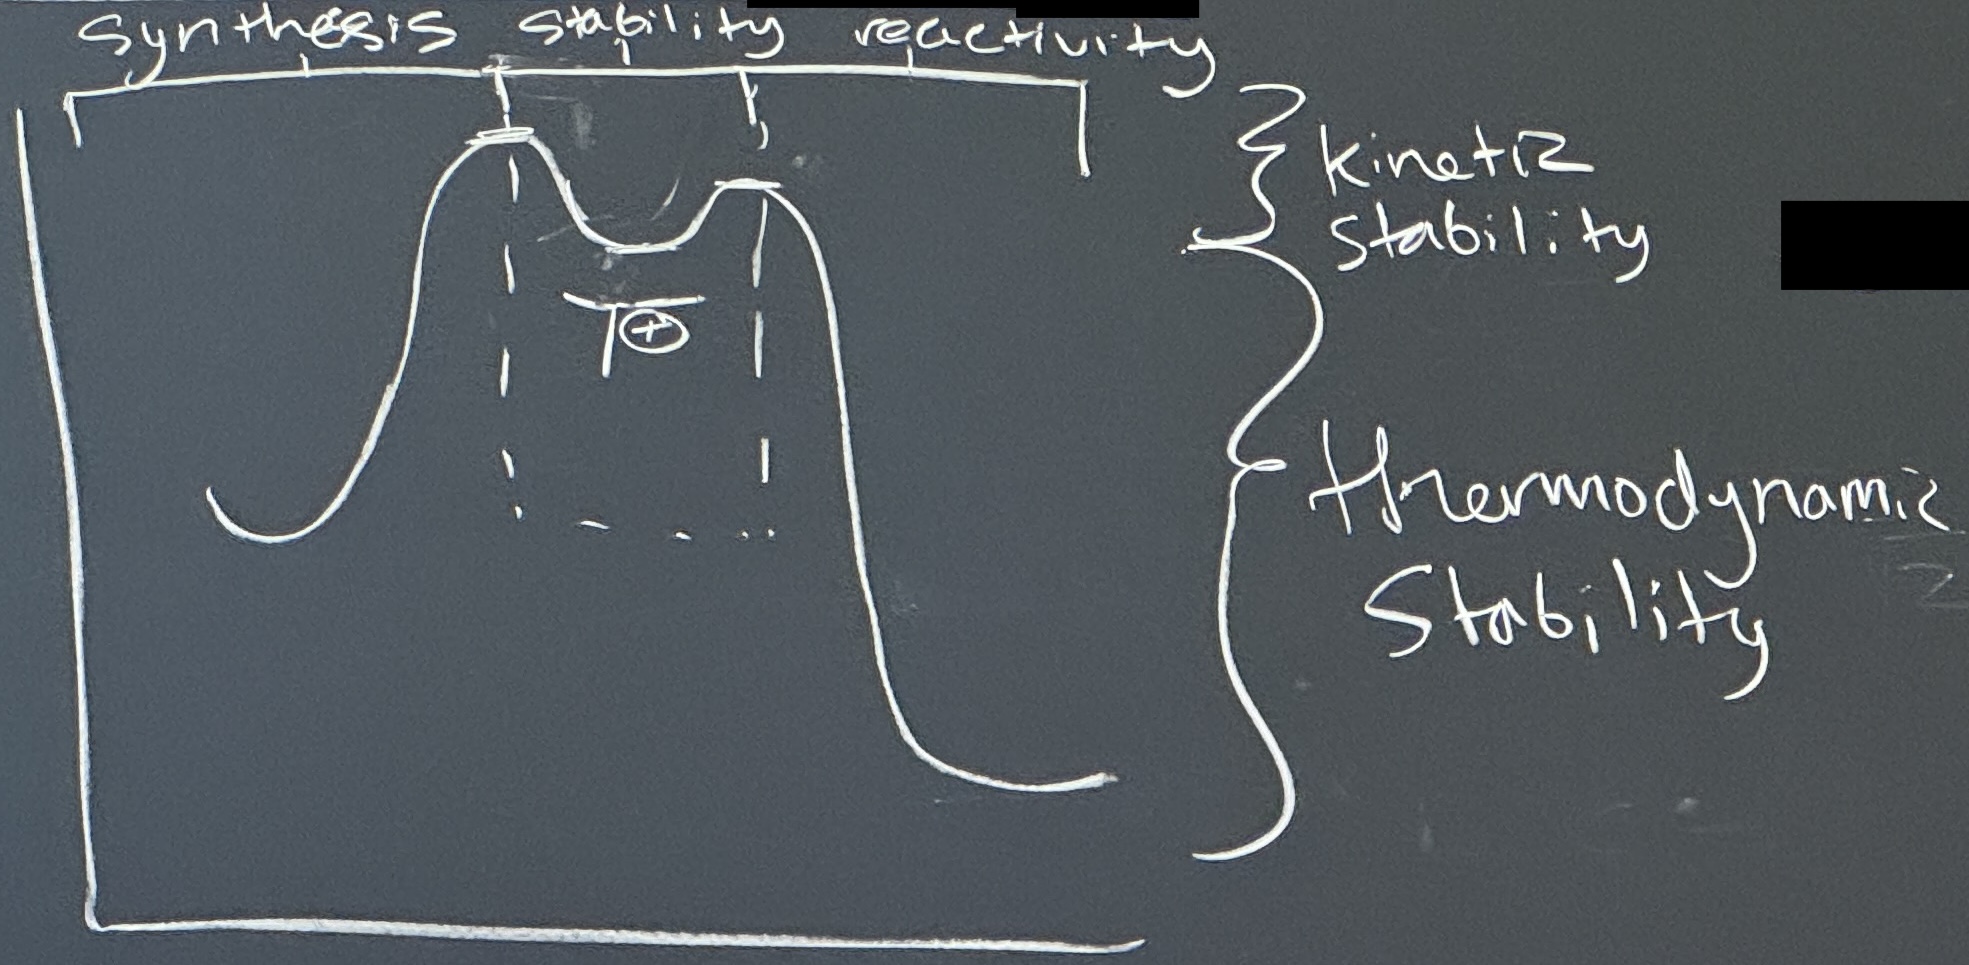 synthesis stability reactivity
kinetic
stability
thermodynamic
stability
+